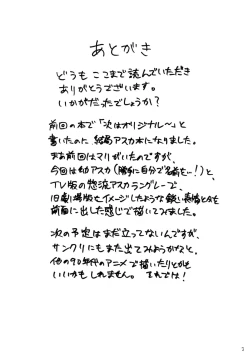 あとがき
どうも ここまで読んでいただき
ありがとうございます。
いかがだったでしょうか?
前回の本で「次はオリジナル〜」と
書いたのに 結局アスカ本になりました。
まあ前回はマリがいたのですが、
今回は幼アスカ(勝手に自分で名前を…!)と、
TV版の惣流アスカラングレーで、
旧劇場版をイメージしたような 鋭い表情と
前面に出した感じで描いてみました。
次の予定はまだ立ってないんですが、
サンクリにもまた出てみようかなと、
他の90年代のアニメで描いたりとかも
いいかもしれません。 それでは!
3